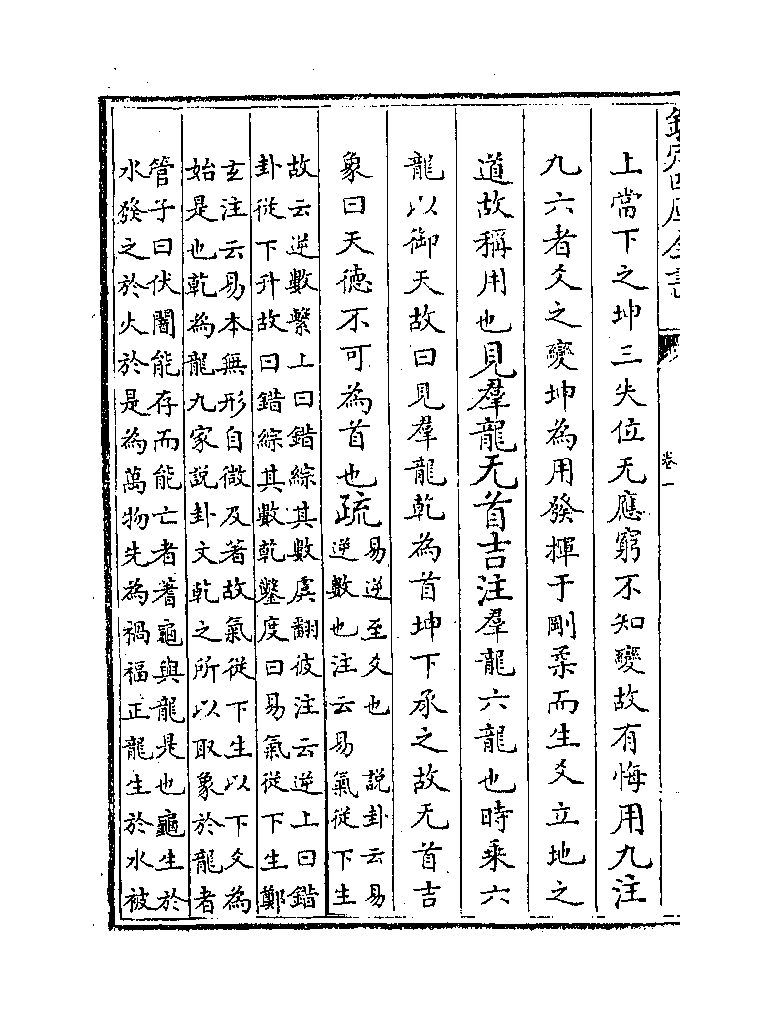 欽定四庫全書
卷一
上當下之坤三失位无應窮不知變故有悔用九注
九六者爻之變坤為用發揮于剛柔而生爻立地之
道故稱用也見羣龍无首吉注羣龍六龍也時乘六
龍以御天故曰見羣龍乾為首坤下承之故无首吉
象曰天德不可為首也疏
易逆至爻也　說卦云易
逆數也注云易氣從下生
故云逆數繫上曰錯綜其數虞翻彼注云逆上曰錯
卦從下升故曰錯綜其數乾鑿度曰易氣從下生鄭
玄注云易本無形自微及著故氣從下生以下爻為
始是也乾為龍九家說卦文乾之所以取象於龍者
管子曰伏闇能存而能亡者蓍龜與龍是也龜生於
水發之於火於是為萬物先為禍福正龍生於水被